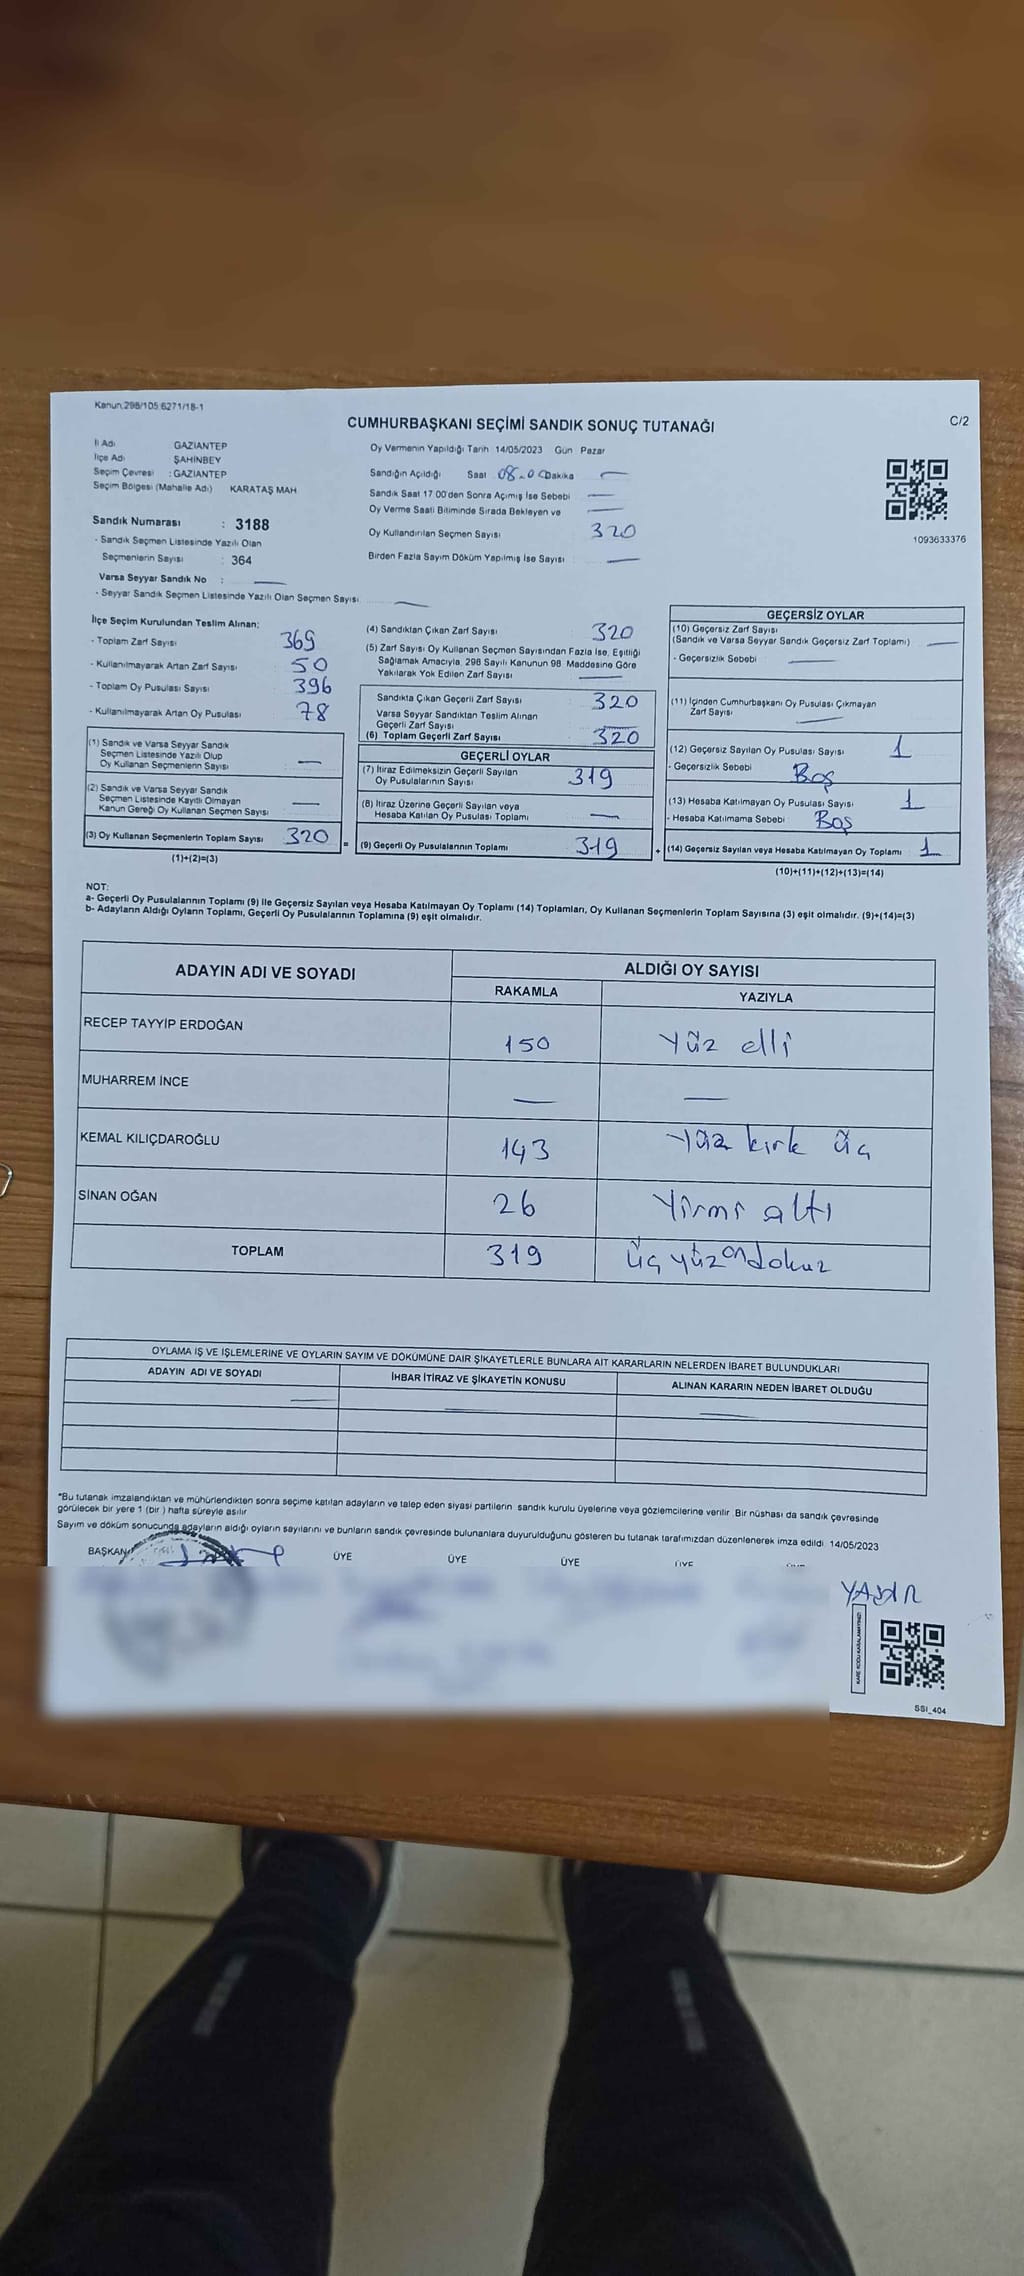 Kanun:298/105:6271/18-1
CUMHURBAŞKANI SEÇİMİ SANDIK SONUÇ TUTANAĞI
C/2
İl Adı GAZİANTEP
İlçe Adı ŞAHİNBEY
Seçim Çevresi : GAZİANTEP
Seçim Bölgesi (Mahalle Adı) KARATAŞ MAH
Oy Vermenin Yapıldığı Tarih 14/05/2023 Gün Pazar
Sandığın Açıldığı Saat 08.00 Dakika —
Sandık Saat 17 00'den Sonra Açımış İse Sebebi —
Oy Verme Saati Bitiminde Sırada Bekleyen ve —
Oy Kullandırılan Seçmen Sayısı 320
Birden Fazla Sayım Döküm Yapılmış İse Sayısı —
1093633376
Sandık Numarası : 3188
- Sandık Seçmen Listesinde Yazılı Olan
Seçmenlerin Sayısı : 364
Varsa Seyyar Sandık No : —
- Seyyar Sandık Seçmen Listesinde Yazılı Olan Seçmen Sayısı —
İlçe Seçim Kurulundan Teslim Alınan;
- Toplam Zarf Sayısı 369
- Kullanılmayarak Artan Zarf Sayısı 50
- Toplam Oy Pusulası Sayısı 396
- Kullanılmayarak Artan Oy Pusulası 78
(1) Sandık ve Varsa Seyyar Sandık
Seçmen Listesinde Yazılı Olup
Oy Kullanan Seçmenlerin Sayısı —
(2) Sandık ve Varsa Seyyar Sandık
Seçmen Listesinde Kayıtlı Olmayan
Kanun Gereği Oy Kullanan Seçmen Sayısı —
(3) Oy Kullanan Seçmenlerin Toplam Sayısı 320
(1)+(2)=(3)
(4) Sandıktan Çıkan Zarf Sayısı 320
(5) Zarf Sayısı Oy Kullanan Seçmen Sayısından Fazla İse, Eşitliği
Sağlamak Amacıyla, 298 Sayılı Kanunun 98 Maddesine Göre
Yakılarak Yok Edilen Zarf Sayısı —
Sandıkta Çıkan Geçerli Zarf Sayısı 320
Varsa Seyyar Sandıktan Teslim Alınan
Geçerli Zarf Sayısı —
(6) Toplam Geçerli Zarf Sayısı 320
GEÇERLİ OYLAR
(7) İtiraz Edilmeksizin Geçerli Sayılan
Oy Pusulalarının Sayısı 319
(8) İtiraz Üzerine Geçerli Sayılan veya
Hesaba Katılan Oy Pusulası Toplamı —
= (9) Geçerli Oy Pusulalarının Toplamı 319
GEÇERSİZ OYLAR
(10) Geçersiz Zarf Sayısı
(Sandık ve Varsa Seyyar Sandık Geçersiz Zarf Toplamı) —
- Geçersizlik Sebebi —
(11) İçinden Cumhurbaşkanı Oy Pusulası Çıkmayan
Zarf Sayısı —
(12) Geçersiz Sayılan Oy Pusulası Sayısı 1
- Geçersizlik Sebebi Boş
(13) Hesaba Katılmayan Oy Pusulası Sayısı 1
- Hesaba Katılmama Sebebi Boş
+ (14) Geçersiz Sayılan veya Hesaba Katılmayan Oy Toplamı 1
(10)+(11)+(12)+(13)=(14)
NOT:
a- Geçerli Oy Pusulalarının Toplamı (9) ile Geçersiz Sayılan veya Hesaba Katılmayan Oy Toplamı (14) Toplamları, Oy Kullanan Seçmenlerin Toplam Sayısına (3) eşit olmalıdır. (9)+(14)=(3)
b- Adayların Aldığı Oyların Toplamı, Geçerli Oy Pusulalarının Toplamına (9) eşit olmalıdır.
ADAYIN ADI VE SOYADI ALDIĞI OY SAYISI
RAKAMLA YAZIYLA
RECEP TAYYİP ERDOĞAN 150 Yüz elli
MUHARREM İNCE — —
KEMAL KILIÇDAROĞLU 143 Yüz kırk üç
SİNAN OĞAN 26 Yirmi altı
TOPLAM 319 üç yüz on dokuz
OYLAMA İŞ VE İŞLEMLERİNE VE OYLARIN SAYIM VE DÖKÜMÜNE DAİR ŞİKAYETLERLE BUNLARA AİT KARARLARIN NELERDEN İBARET BULUNDUKLARI
ADAYIN ADI VE SOYADI İHBAR İTİRAZ VE ŞİKAYETİN KONUSU ALINAN KARARIN NEDEN İBARET OLDUĞU
— — —
*Bu tutanak imzalandıktan ve mühürlendikten sonra seçime katılan adayların ve talep eden siyasi partilerin sandık kurulu üyelerine veya gözlemcilerine verilir Bir nüshası da sandık çevresinde
görülecek bir yere 1 (bir) hafta süreyle asılır
Sayım ve döküm sonucunda adayların aldığı oyların sayılarını ve bunların sandık çevresinde bulunanlara duyurulduğunu gösteren bu tutanak tarafımızdan düzenlenerek imza edildi 14/05/2023
BAŞKAN ÜYE ÜYE ÜYE ÜYE
KARE KODU KARALAMAYINIZ!
SSI_404